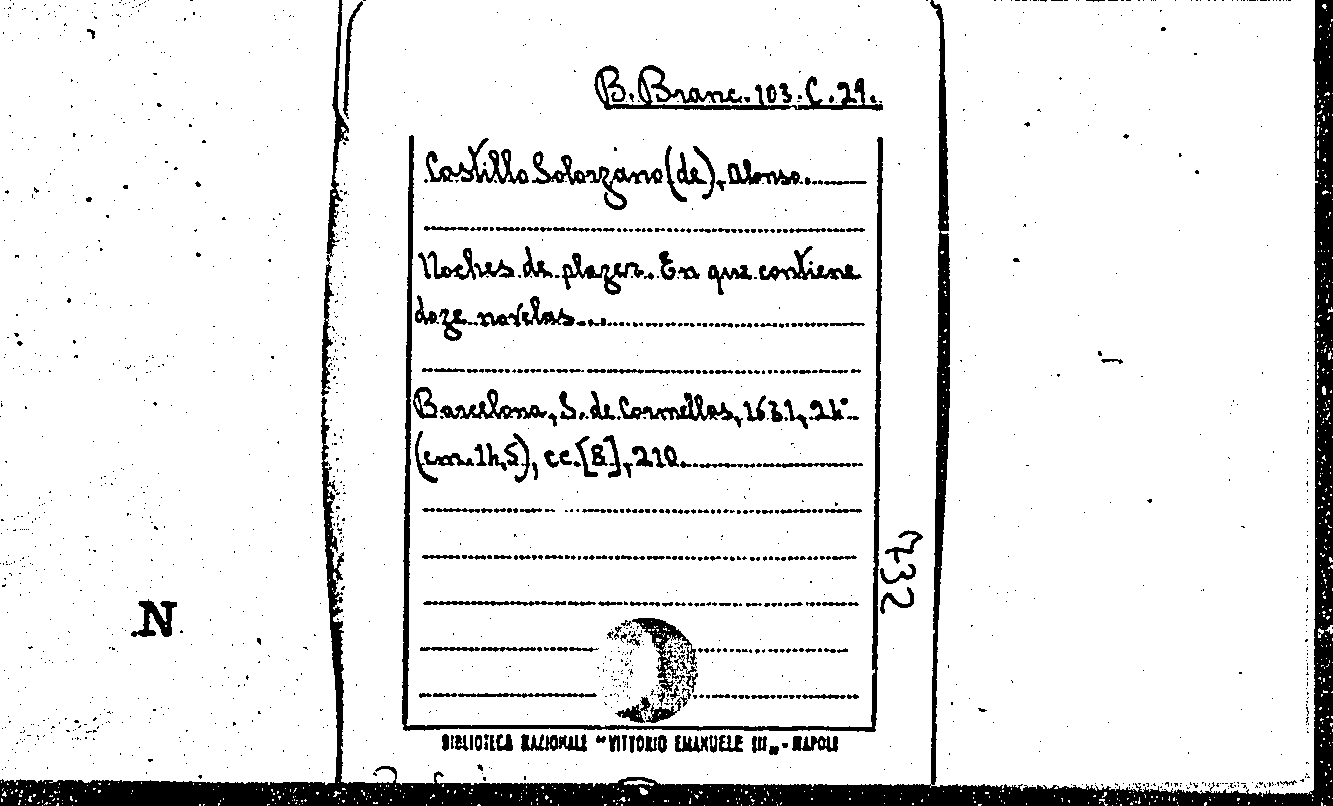 B. Branc. 103. C. 29.
Castillo Solorzano (de), Alonso.
Noches de plazer. En que contiene
doze novelas...
Barcelona, S. de Cormellas, 1631, 24°
(cm. 14,5), cc. [8], 210.
732
N
BIBLIOTECA NAZIONALE "VITTORIO EMANUELE III„ - NAPOLI